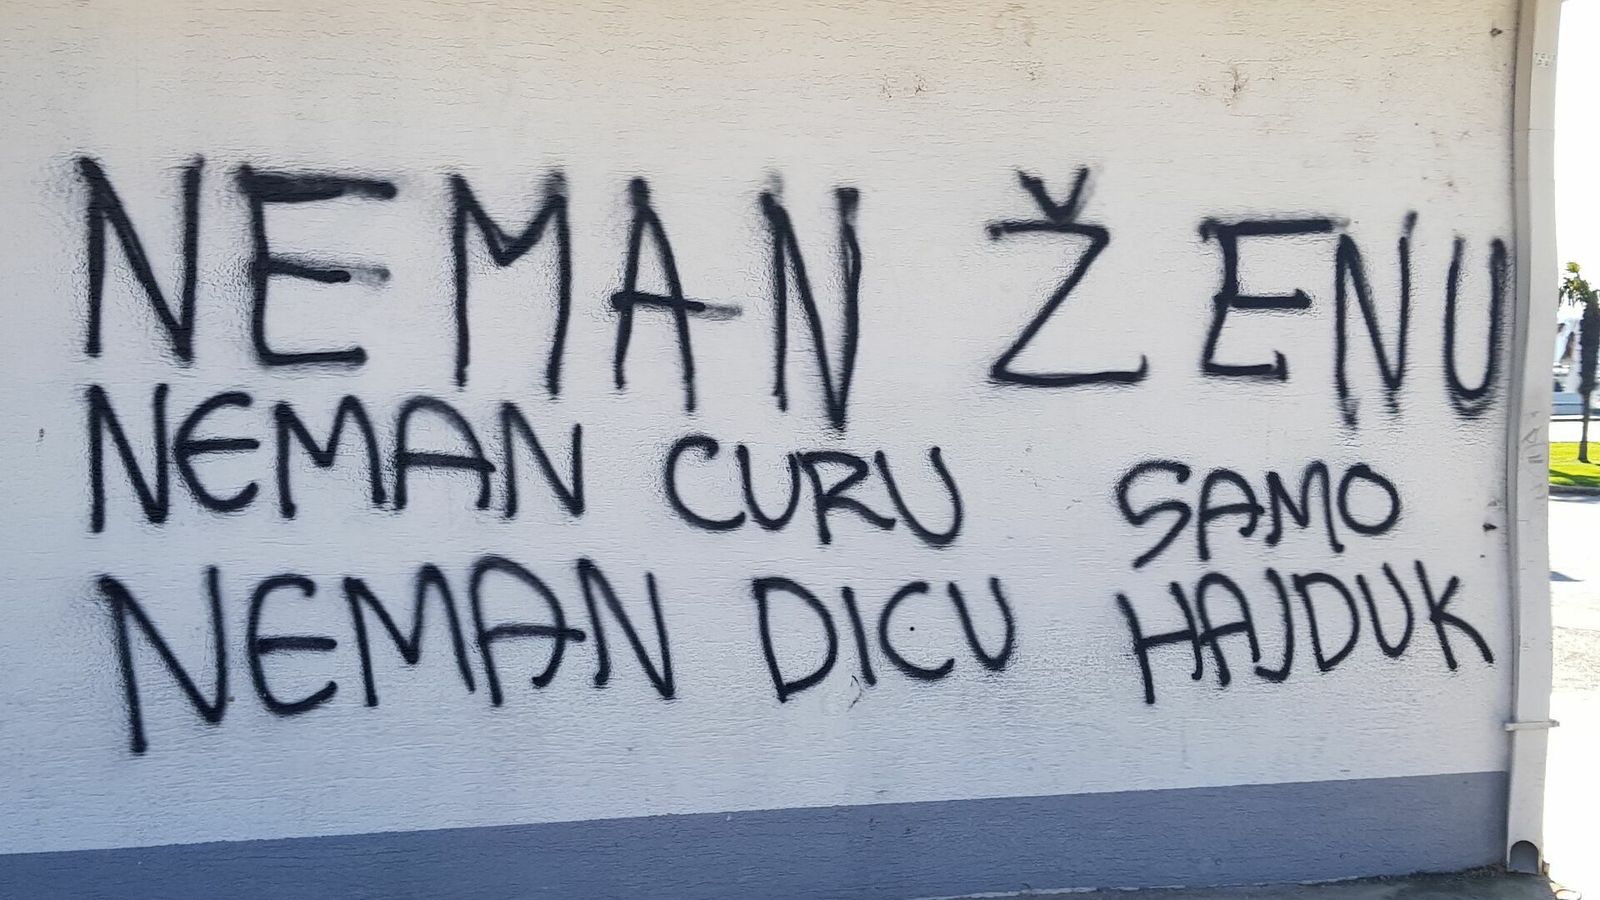 NEMAN ŽENU
NEMAN CURU SAMO
NEMAN DICU HAJDUK